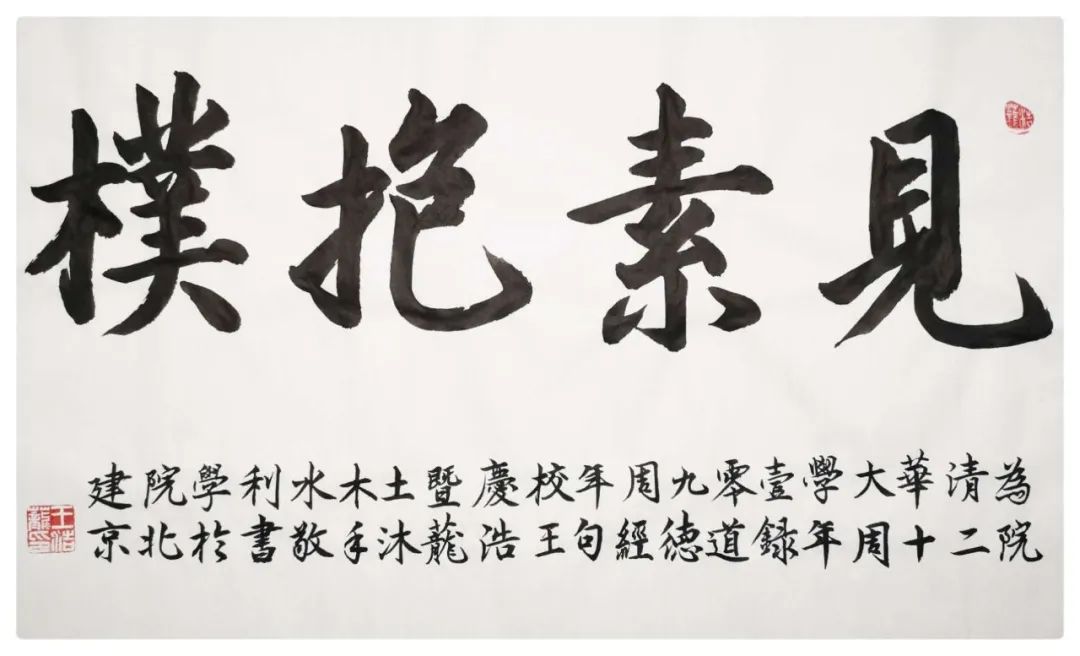 見素抱樸
為清華大學壹零九周年校慶暨土木水利學院建
院二十周年錄道德經句王浩龍沐手敬書於北京
王浩
龍印